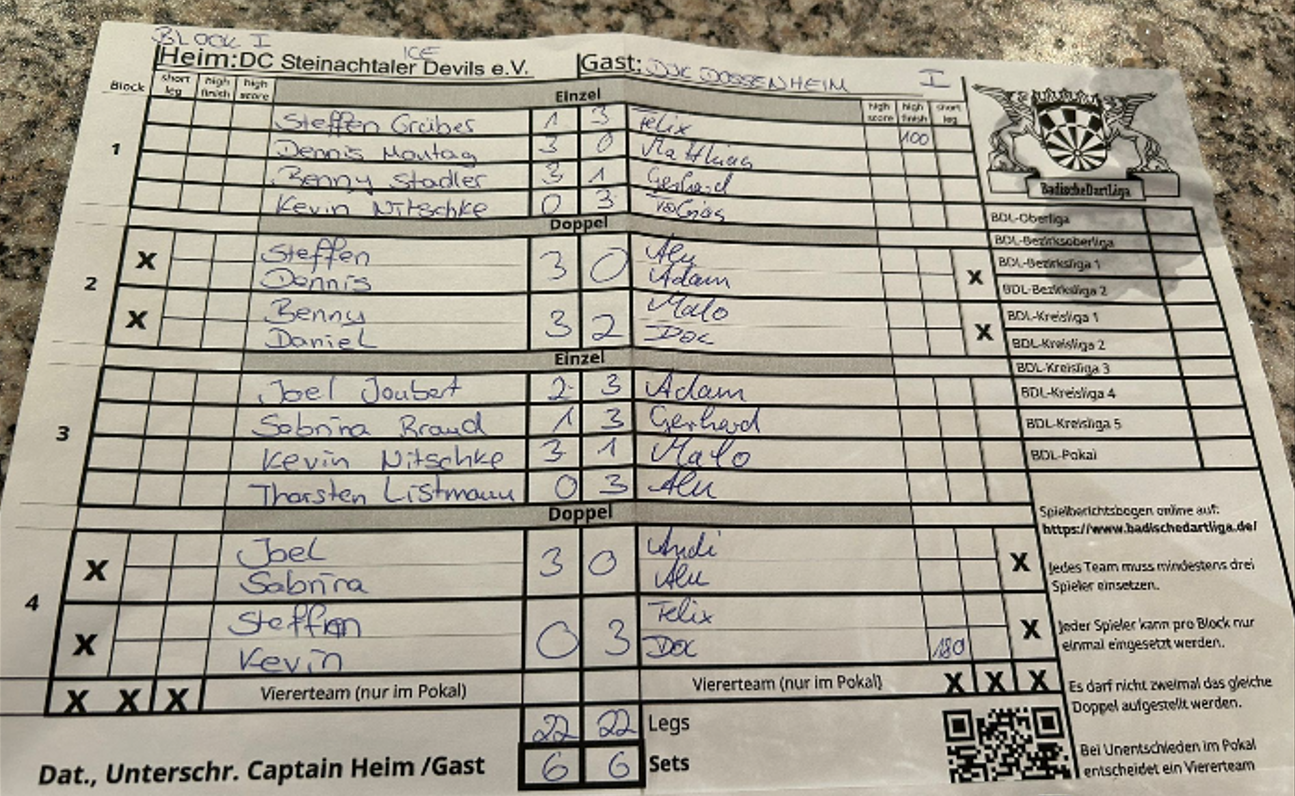 BLOCK I
ICE
Heim:DC Steinachtaler Devils e.V. Gast: DJK DOSSENHEIM I
Block short leg high finish high score Einzel high score high finish short leg
1
Steffen Gruber 1 3 Felix 100
Dennis Montag 3 0 Matthias
Benny Stadler 3 1 Gerhard
Kevin Nitschke 0 3 Tobias
BadischeDartLiga
Doppel
2
X Steffen 3 0 Alu X
Dennis Adam
X Benny 3 2 Malo X
Daniel Doc
Einzel
3
Joel Joubert 2 3 Adam
Sabrina Braud 1 3 Gerhard
Kevin Nitschke 3 1 Malo
Thorsten Listmann 0 3 Alu
Doppel
4
X Joel 3 0 Andi X
Sabrina Alu
X Steffen 0 3 Felix X
Kevin Doc 180
X X X Viererteam (nur im Pokal) Viererteam (nur im Pokal) X X X
22 22 Legs
Dat., Unterschr. Captain Heim /Gast 6 6 Sets
BDL-Oberliga
BDL-Bezirksoberliga
BDL-Bezirksliga 1
BDL-Bezirksliga 2
BDL-Kreisliga 1
BDL-Kreisliga 2
BDL-Kreisliga 3
BDL-Kreisliga 4
BDL-Kreisliga 5
BDL-Pokal
Spielberichtsbogen online auf:
https://www.badischedartliga.de/
Jedes Team muss mindestens drei
Spieler einsetzen.
Jeder Spieler kann pro Block nur
einmal eingesetzt werden.
Es darf nicht zweimal das gleiche
Doppel aufgestellt werden.
Bei Unentschieden im Pokal
entscheidet ein Viererteam